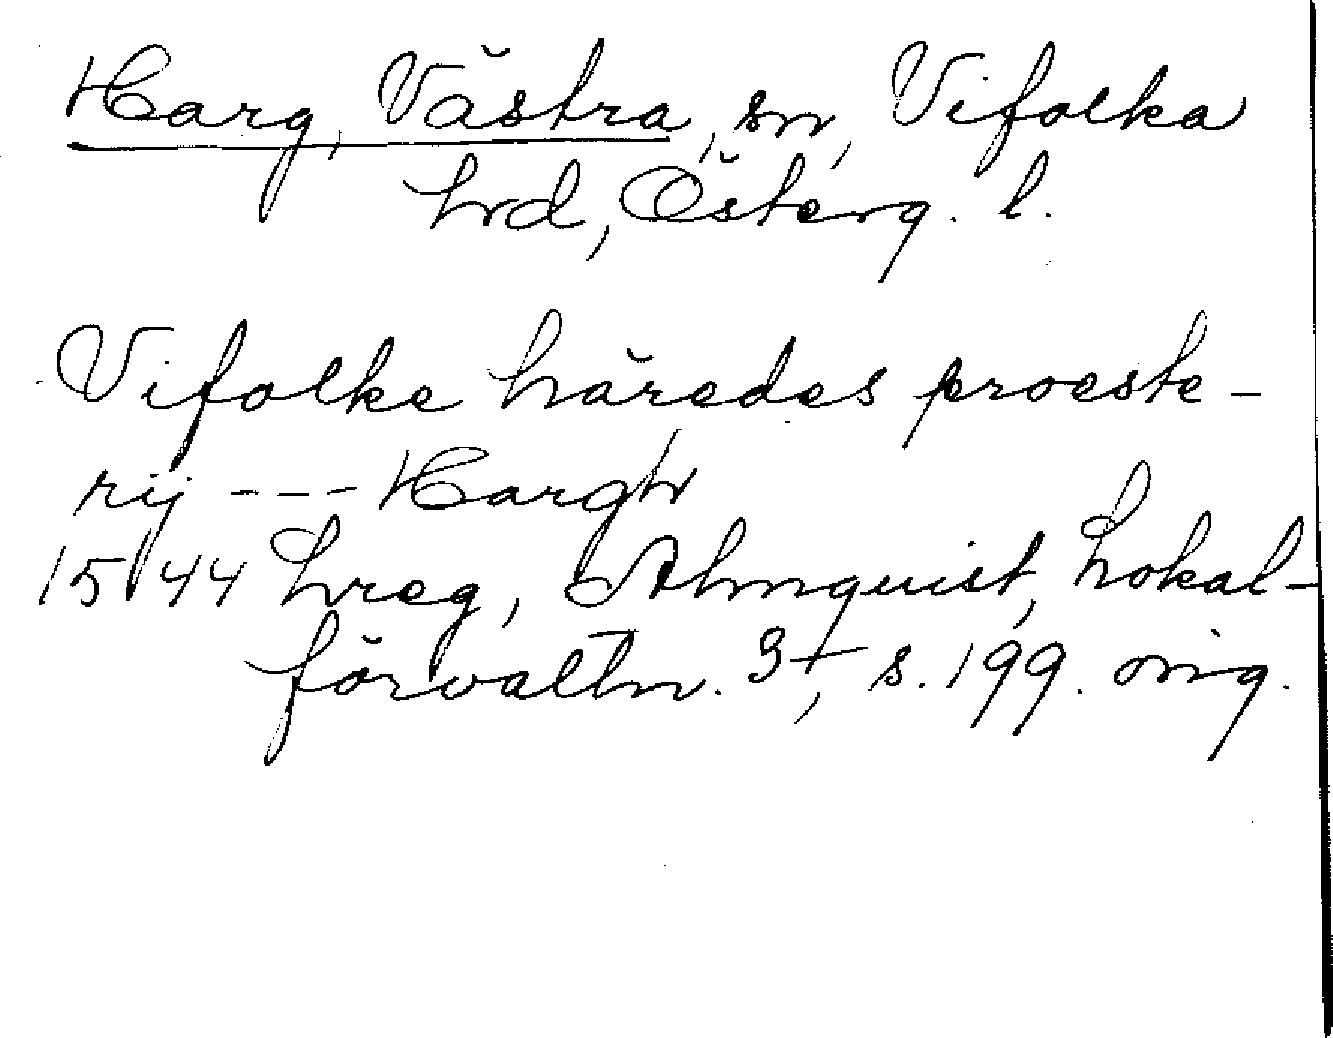 Harg, Västra, sn, Vifolka
hrd, Österg. l.
Vifolke häredes proeste-
rij --- Hargh
1544 hreg, Almquist, Lokal-
förvaltn. 3+, s. 199. orig.